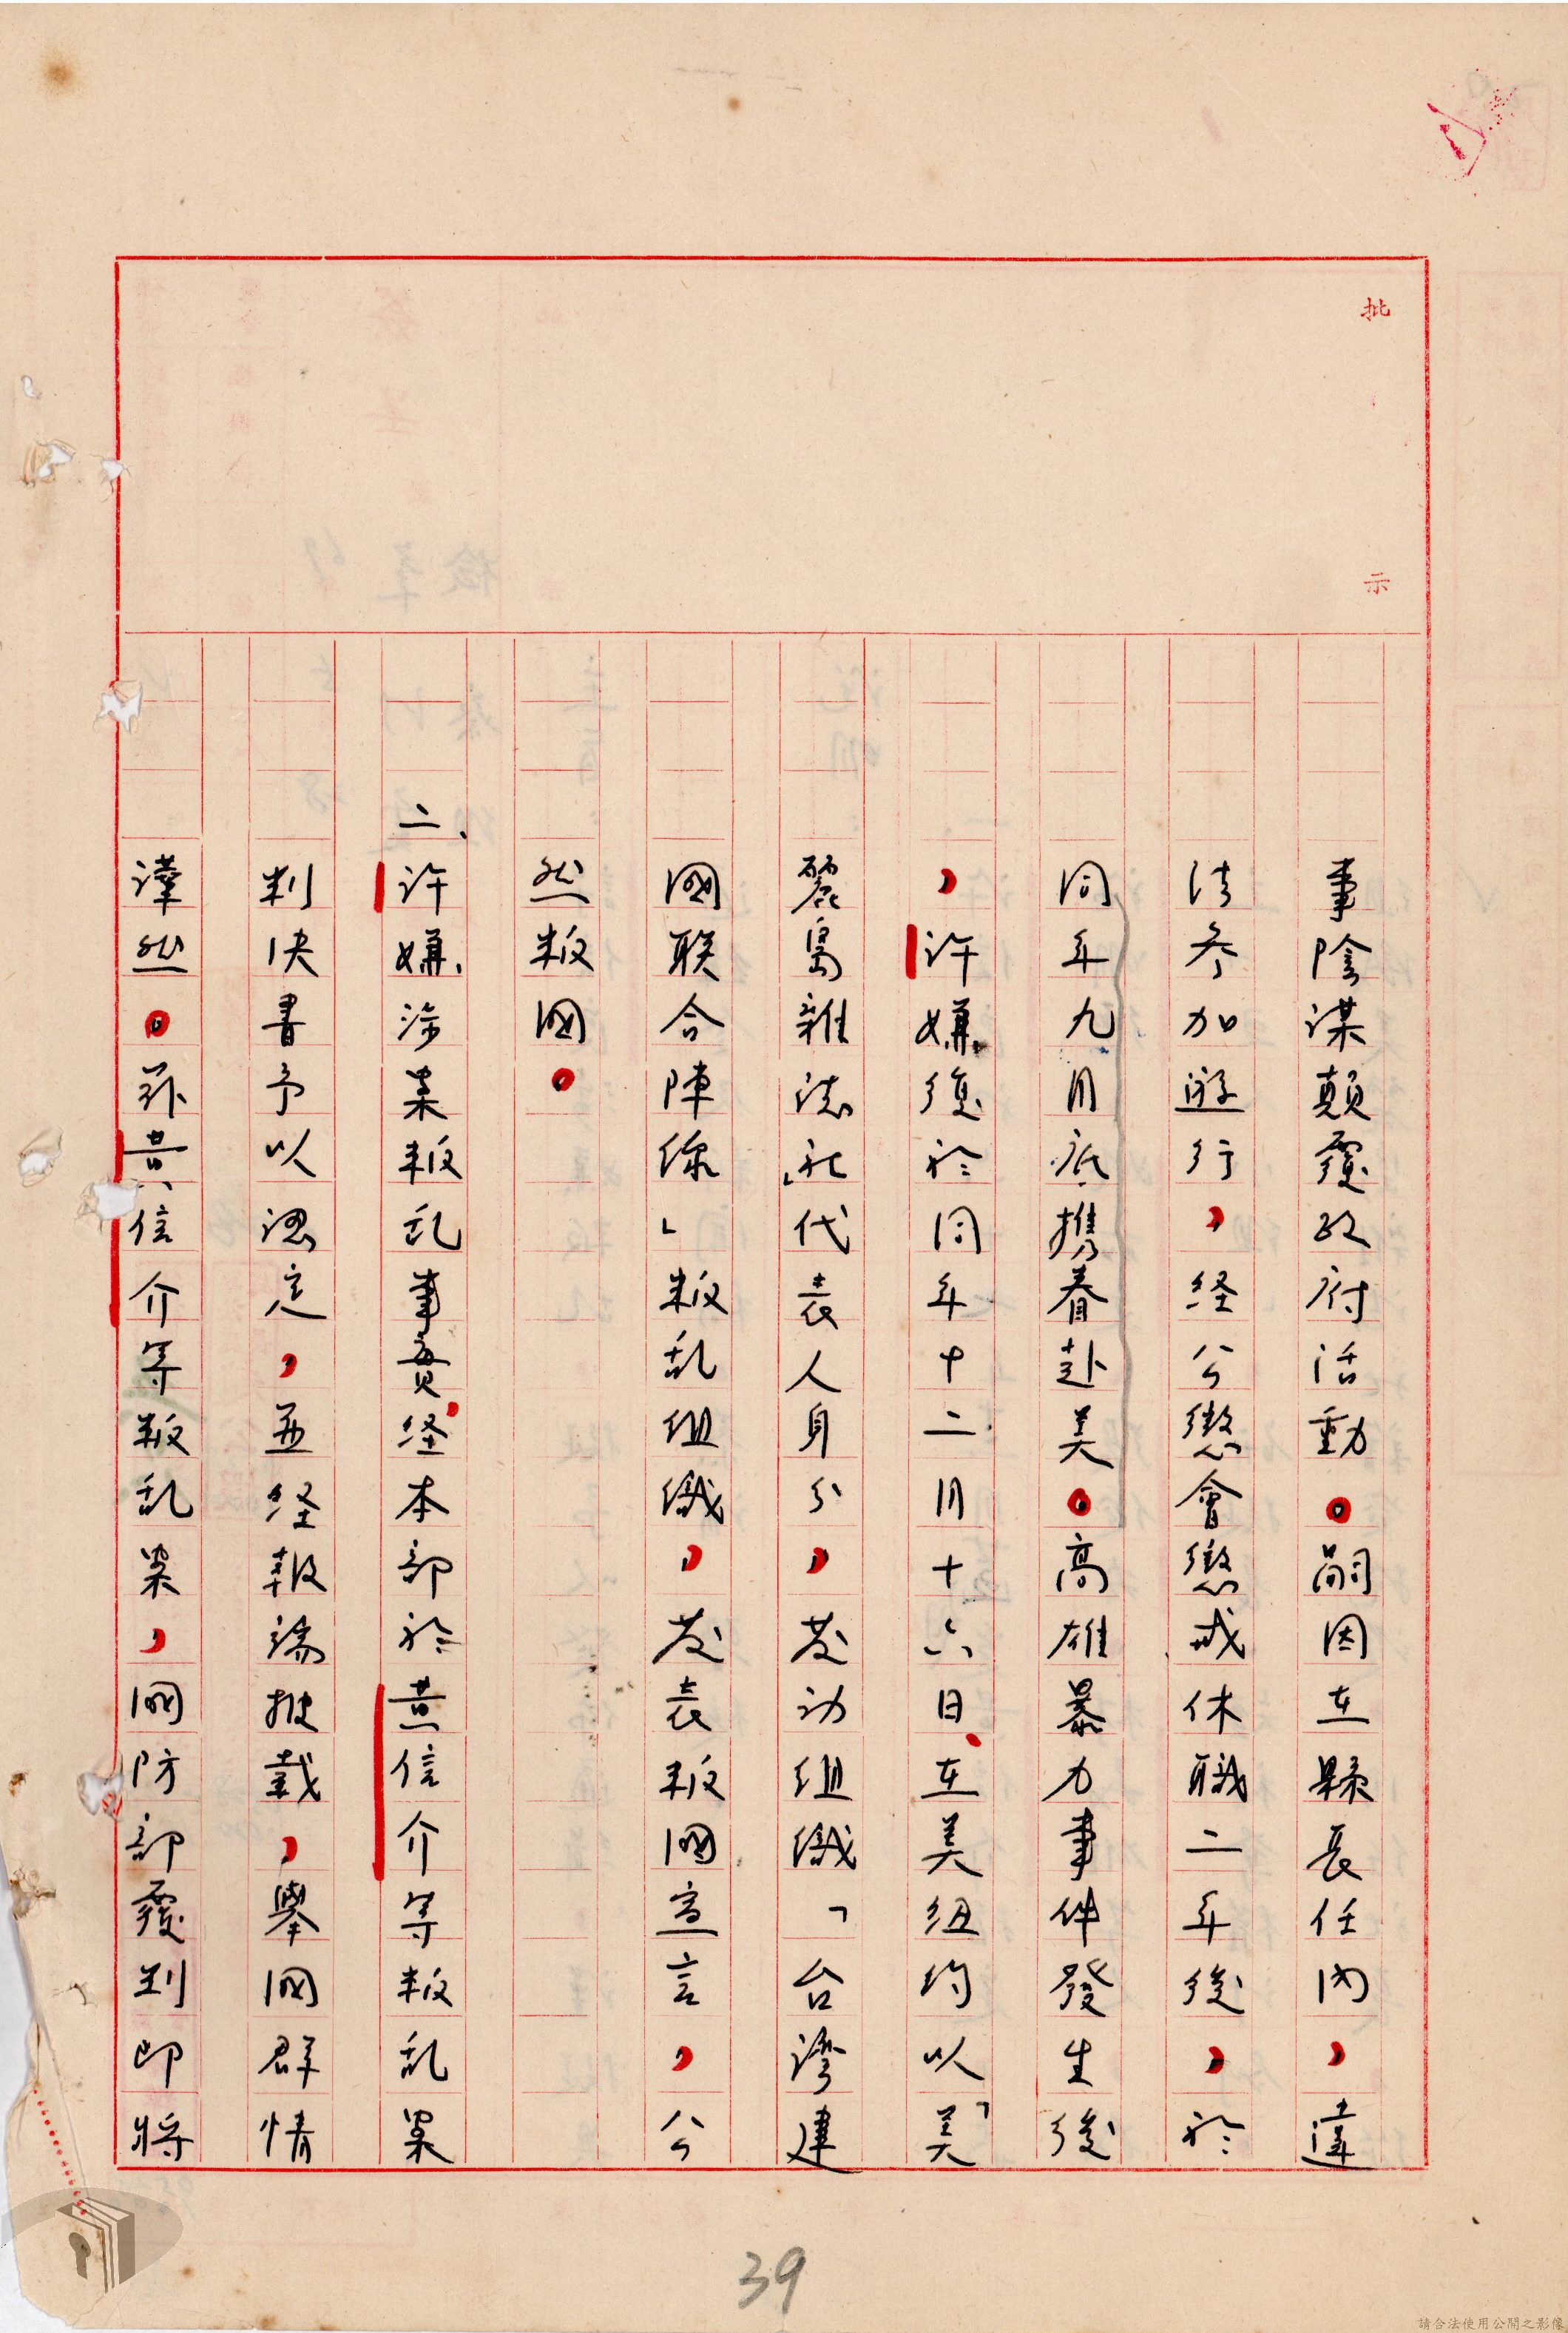 批示
事陰謀顛覆政府活動。嗣因在縣長任內,違
法參加遊行,経公懲會懲戒休職二年後,於
同年九月底携眷赴美。高雄暴力事件發生後
,許嫌復於同年十二月十六日在美紐約以「美
麗島雜誌社」代表人身分,發动組織「台灣建
國联合陣線」叛乱組織,发表叛國宣言,公
然叛國。
二、許嫌涉案叛乱事實経本部於黃信介等叛乱案
判決書予以认定,並経報端披載,舉國群情
譁然。茲黃信介等叛乱案,國防部覆判即將
39
請合法使用公開之影像